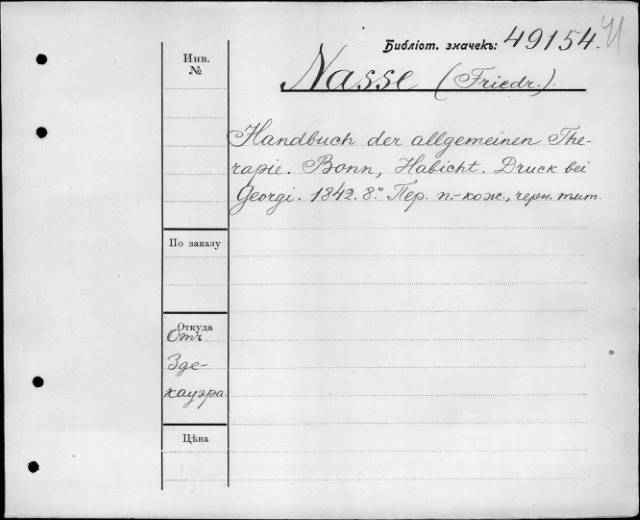 Библіот. значекъ: 49154.
Инв.
№
Nasse (Friedr.).
Handbuch der allgemeinen The-
rapie. Bonn, Habicht. Druck bei
Georgi. 1842. 8.° Пер. п.-кож., черн. тит.
По заказу
Откуда
Отъ
Зде-
кауэра.
Цѣна